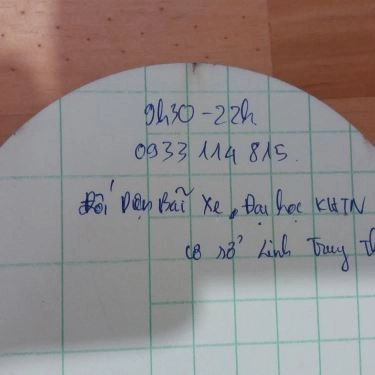 9h30 - 22h
0933 114 815.
Đối Diện Bãi Xe, Đại học KHTN
cơ sở Linh Trung Th